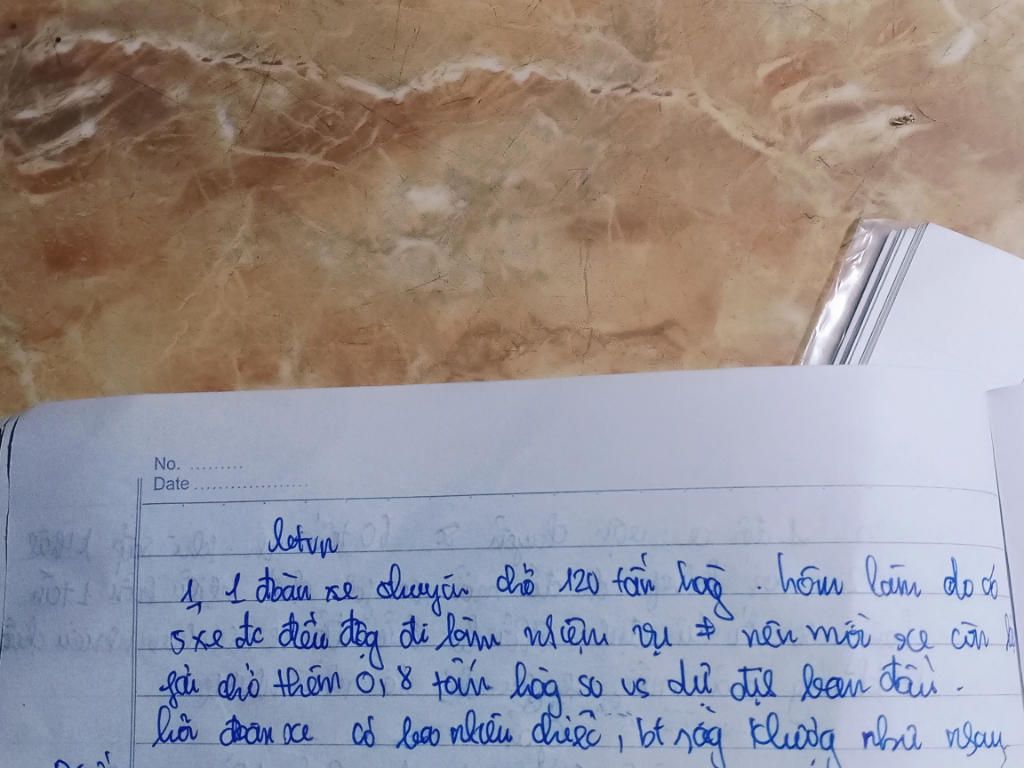 No. .........
Date ...................
bctvn
1, 1 đoàn xe chuyên chở 120 tấn hàg. hôm làm do có
5 xe đc điều độg đi làm nhiệm vụ # nên mỗi xe còn
fải chở thêm 0,8 tấn hàg so vs dự địh ban đầu.
hỏi đoàn xe có bao nhiêu chiếc, bt rằg khg như nhau